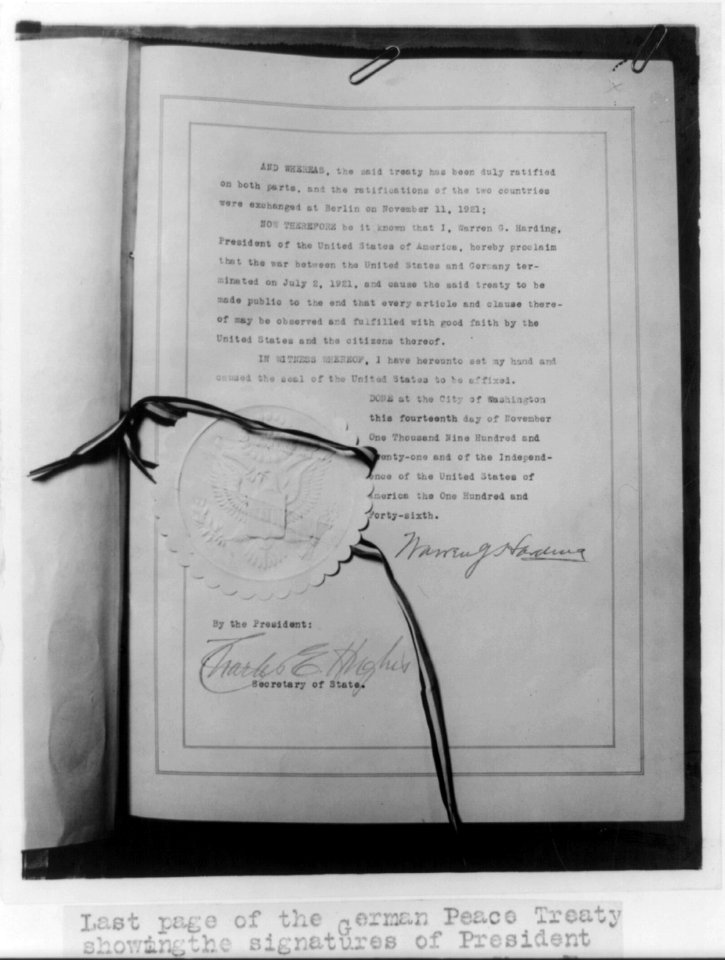 AND WHEREAS, the said treaty has been duly ratified
on both parts, and the ratifications of the two countries
were exchanged at Berlin on November 11, 1921;
NOW THEREFORE be it known that I, Warren G. Harding,
President of the United States of America, hereby proclaim
that the war between the United States and Germany ter-
minated on July 2, 1921, and cause the said treaty to be
made public to the end that every article and clause there-
of may be observed and fulfilled with good faith by the
United States and the citizens thereof.
IN WITNESS WHEREOF, I have hereunto set my hand and
caused the seal of the United States to be affixed.
DONE at the City of Washington
this fourteenth day of November
One Thousand Nine Hundred and
Twenty-one and of the Independ-
ence of the United States of
America the One Hundred and
Forty-sixth.
Warren G Harding
By the President:
Charles E Hughes
Secretary of State.
Last page of the German Peace Treaty
showingthe signatures of President